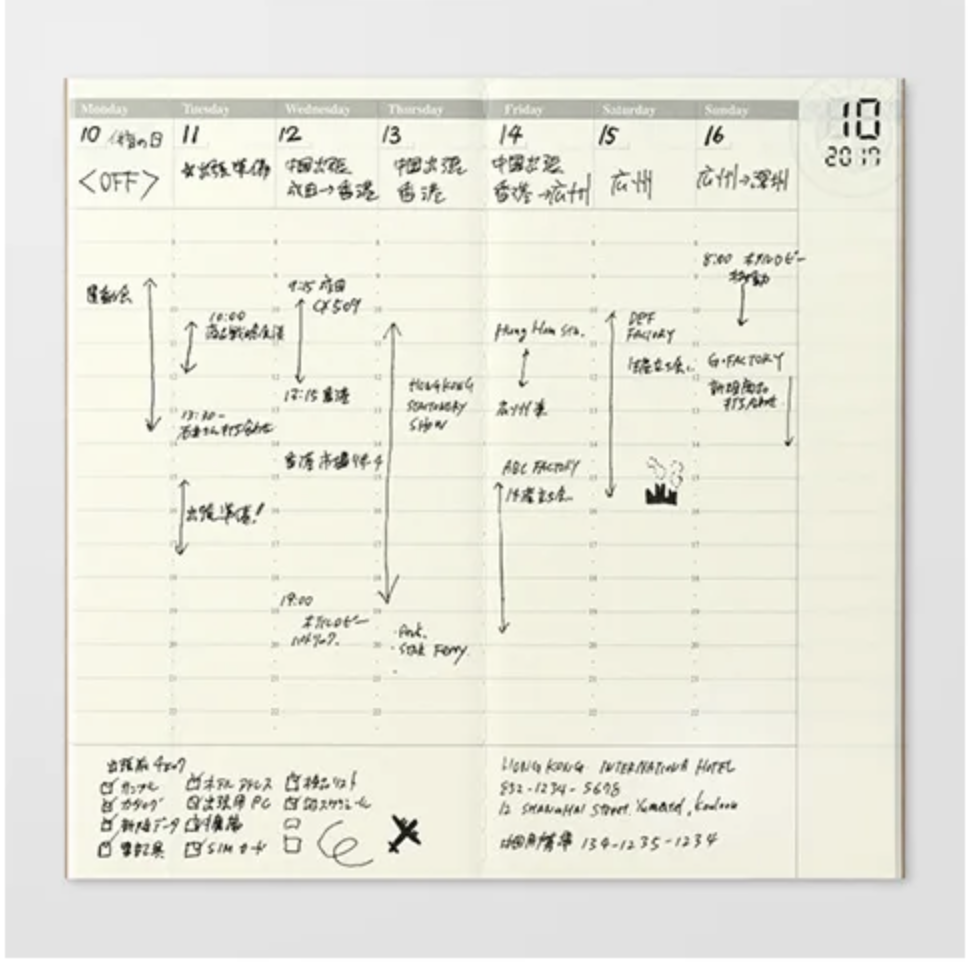 Monday Tuesday Wednesday Thursday Friday Saturday Sunday
10
2017
10 体育の日
<OFF>
11
出張準備
12
中国出張
成田→香港
13
中国出張
香港
14
中国出張
香港→広州
15
広州
16
広州→深圳
運動会
10:00
13:30-
打ち合わせ
出張準備!
9:15 成田
CX509
12:15 香港
香港市場リサーチ
19:00
ホテルロビー
HONGKONG
STATIONERY
SHOW
Star Ferry.
Hung Hom Sta.
広州東
ABC FACTORY
生産立ち会い
DEF
FACTORY
生産立ち会い
8:00 ホテルロビー
移動
G・FACTORY
新規商品
打ち合わせ
出張前チェック
サンプル
カタログ
新商品データ
筆記具
ホテルアドレス
出張用PC
SIMカード
検品リスト
HONG KONG INTERNATIONAL HOTEL
852-1234-5678
12 SHANGHAI STREET. Yaumatei, Kowloon
中国用携帯 134-1235-1234